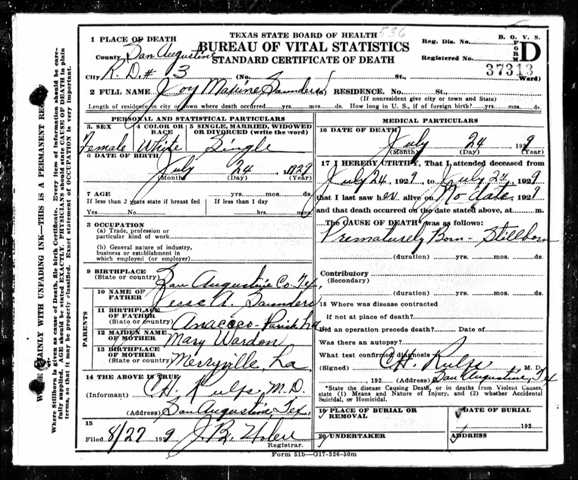 536
TEXAS STATE BOARD OF HEALTH
BUREAU OF VITAL STATISTICS
STANDARD CERTIFICATE OF DEATH
B. O. V. S.
FORM D
Reg. Dis. No.
Registered No.
37313
1 PLACE OF DEATH
County San Augustine
City R.D.# 3 (No. St., Ward)
2 FULL NAME Joy Maxine Saunders (a) RESIDENCE. No. St.,
(If nonresident give city or town and State)
Length of residence in city or town where death occurred yrs. mos. ds. How long in U. S., if of foreign birth? yrs. mos. ds.
PERSONAL AND STATISTICAL PARTICULARS
3. SEX Female
4 COLOR OR RACE White
5 SINGLE, MARRIED, WIDOWED OR DIVORCED (write the word) Single
6 DATE OF BIRTH
July 24 1929
(Month) (Day) (Year)
7 AGE yrs. mos. ds.
If less than 2 years state if breast fed If less than 1 day
Yes No hrs. min.
8 OCCUPATION
(a) Trade, profession or
particular kind of work
(b) General nature of industry,
business or establishment in
which employed (or employer)
9 BIRTHPLACE
(State or country) San Augustine Co. Tex.
PARENTS
10 NAME OF FATHER Jesse A. Saunders
11 BIRTHPLACE OF FATHER
(State or country) Anacoco - Parish La
12 MAIDEN NAME OF MOTHER Mary Wardon
13 BIRTHPLACE OF MOTHER
(State or country) Merryville, La
14 THE ABOVE IS TRUE
(Informant) C.H. Rulfs M.D.
(Address) San Augustine Tex.
15
Filed 8/27 1929 J.B.
Registrar.
MEDICAL PARTICULARS
16 DATE OF DEATH
July 24 1929
(Month) (Day) (Year)
17 I HEREBY CERTIFY, That I attended deceased from
July 24, 1929 to July 24, 1929
that I last saw her alive on No date 1929
and that death occurred on the date stated above, at m.
The CAUSE OF DEATH was as follows:
Prematurely Born - Stillborn
(duration) yrs. mos. ds.
Contributory
(Secondary)
(duration) yrs. mos. ds.
18 Where was disease contracted
if not at place of death?
Did an operation precede death? Date of
Was there an autopsy?
What test confirmed diagnosis?
(Signed) C.H. Rulfs M. D.
, 192 (Address) San Augustine, Tex
*State the disease Causing Death, or in deaths from Violent Causes, state (1) Means and Nature of Injury, and (2) whether Accidental, Suicidal, or Homicidal.
19 PLACE OF BURIAL OR REMOVAL DATE OF BURIAL
192
20 UNDERTAKER ADDRESS
Form 51b—G17-526-50m